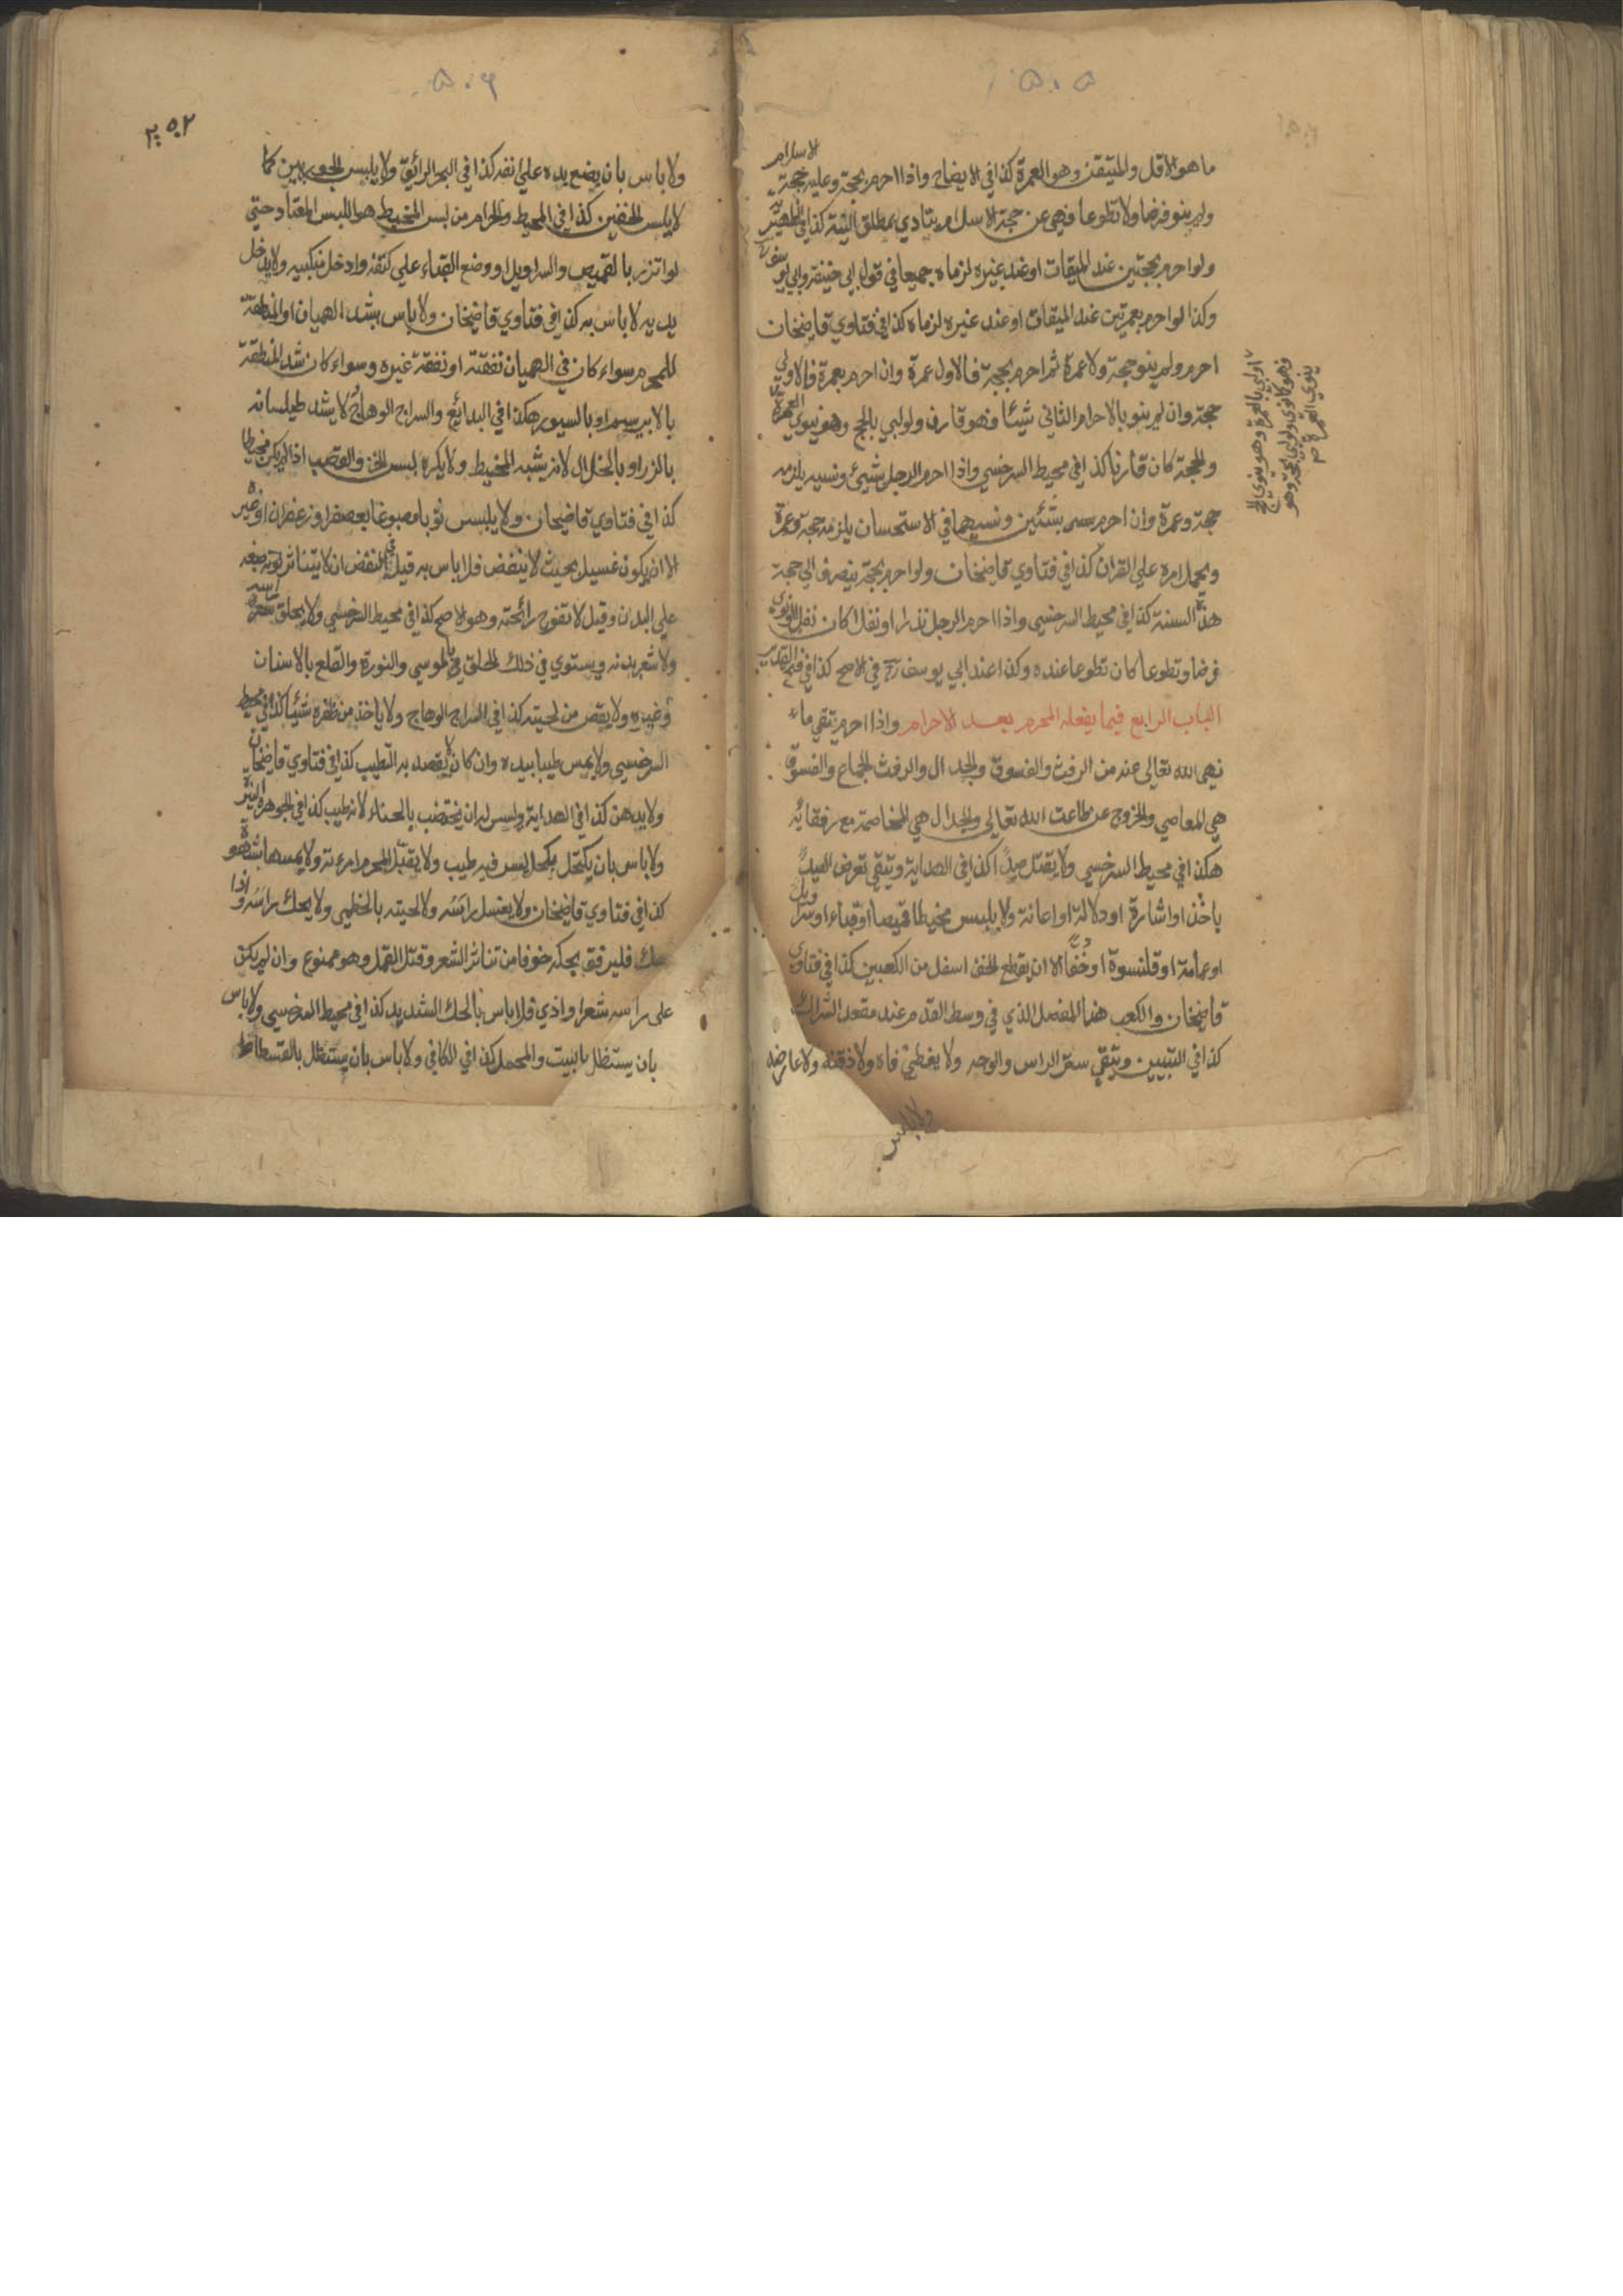 ٥٠٥
ما هو الاقل والمتيقن وهو العمرة كذا في الايضاح واذا احرم بحجة وعليه حجة الاسلام
ولم ينو فرضا ولا تطوعا فهي عن حجة الاسلام يتادي بمطلق النية كذا في الظهيرية
ولو احرم بحجتين عند الميقات او عند غيره لزماه جميعا في قول ابي حنيفة وابي يوسف
وكذا لو احرم بعمرتين عند الميقات او عند غيره لزماه كذا في فتاوي قاضيخان
احرم ولم ينو حجة ولا عمرة ثم احرم بحجة فالاول عمرة وان احرم بعمرة فالاولي
حجة وان لم ينو بالاحرام الثاني شيئا فهو قارن ولو لبي بالحج وهو ينوي العمرة
والحجة كان قارنا كذا في محيط السرخسي واذا احرم الرجل بشيئ ونسيه يلزمه
حجة وعمرة وان احرم بشيئين ونسيهما في الاستحسان يلزمه حجة وعمرة
ويحمل امره علي القران كذا في فتاوي قاضيخان ولو احرم بحجة ينصرف الي حجة
هذه السنة كذا في محيط السرخسي واذا احرم الرجل نذرا او نفلا كان نفلا ولو نوي
فرضا وتطوعا كان تطوعا عنده وكذا عند ابي يوسف رح في الاصح كذا في فتح القدير
الباب الرابع فيما يفعله المحرم بعد الاحرام واذا احرم يتقي ما
نهي الله تعالى عنه من الرفث والفسوق والجدال والرفث الجماع والفسوق
هي المعاصي والخروج عن طاعت الله تعالى والجدال هي المخاصمة مع رفقائه
هكذا في محيط السرخسي ولا يقتل صيدا كذا في الهداية ويتقي تعرض الصيد
باخذ او اشارة او دلالة او اعانة ولا يلبس مخيطا قميصا او قباء او سراويل
او عمامة او قلنسوة او خفا الا ان يقطع الخف اسفل من الكعبين كذا في فتاوي
قاضيخان والكعب هنا المفصل الذي في وسط القدم عند مقعد الشراك
كذا في التبيين ويتقي ستر الراس والوجه ولا يغطي فاه ولا ذقنه ولا عارضه
ولاباس
او لبي بالعمرة وهو ينوي الحج
فهو كما نوي ولو لبي بحجة وهو
ينوي العمرة
٥٠٦
٢٥٢
ولا باس بان يضع يده علي انفه كذا في البحر الرائق ولا يلبس الجوربين كما
لا يلبس الخفين كذا في المحيط والحرام من لبس المخيط هو اللبس المعتاد حتي
لو اتزر بالقميص والسراويل او وضع القباء علي كتفه وادخل منكبيه ولا يدخل
يديه لا باس به كذا في فتاوي قاضيخان ولا باس بشد الهميان او المنطقة
للمحرم سواء كان في الهميان نفقته او نفقة غيره وسواء كان شد المنطقة
بالابريسم او بالسيور هكذا في البدائع والسراج الوهاج لا يشد طيلسانه
بالزر او بالخلال لانه يشبه المخيط ولا يكره لبس الخز والقصب اذا لم يكن مخيطا
كذا في فتاوي قاضيخان ولا يلبس ثوبا مصبوغا بعصفر او زعفران او غيره
الا ان يكون غسيلا بحيث لا ينفض فلا باس به قيل في النفض ان لا يتناثر لونه صبغه
علي البدن وقيل لا تفوح رائحته وهو الاصح كذا في محيط السرخسي ولا يحلق شعر راسه
ولا شعر بدنه ويستوي في ذلك الحلق بالموسي والنورة والقلع بالاسنان
وغيره ولا يقص من لحيته كذا في السراج الوهاج ولا ياخذ من ظفره شيئا كذا في محيط
السرخسي ولا يمس طيبا بيده وان كان لا يقصد به التطيب كذا في فتاوي قاضيخان
ولا يدهن كذا في الهداية وليس له ان يختضب بالحناء لانه طيب كذا في الجوهرة النيرة
ولا باس بان يكتحل بكحل ليس فيه طيب ولا يقبل المحرم امرءته ولا يمسها بشهوة
كذا في فتاوي قاضيخان ولا يغسل راسه ولا لحيته بالخطمي ولا يحك راسه واذا
حك فليرفق بحكه خوفا من تناثر الشعر وقتل القمل وهو ممنوع وان لم يكن
على راسه شعر او اذي فلا باس بالحك الشديد كذا في محيط السرخسي ولا باس
بان يستظل بالبيت والمحمل كذا في الكافي ولا باس بان يستظل بالفسطاط